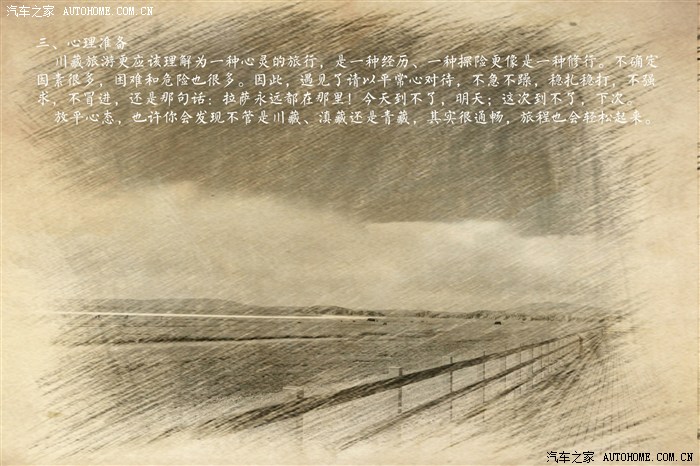 汽车之家 AUTOHOME.COM.CN
三、心理准备
川藏旅游更应该理解为一种心灵的旅行，是一种经历、一种探险更像是一种修行。不确定
因素很多，困难和危险也很多。因此，遇见了请以平常心对待，不急不躁，稳扎稳打，不强
求，不冒进，还是那句话：拉萨永远都在那里！今天到不了，明天；这次到不了，下次。
放平心态，也许你会发现不管是川藏、滇藏还是青藏，其实很通畅，旅程也会轻松起来。
汽车之家 AUTOHOME.COM.CN